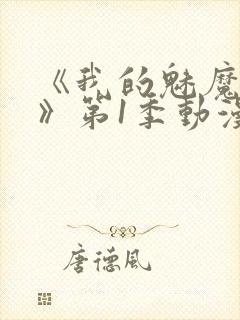 《我的魅魔
》第1季動漫
唐德风